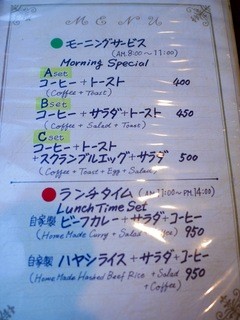 MENU
モーニングサービス
(AM. 8:00~11:00)
Morning Special
Aset
コーヒー+トースト 400
(Coffee + Toast)
Bset
コーヒー+サラダ+トースト 450
(Coffee + Salad + Toast)
Cset
コーヒー+トースト
+スクランブルエッグ+サラダ 500
(Coffee + Toast + Egg + Salad)
ランチタイム (AM 11:00~PM. 14:00)
Lunch Time Set
自家製 ビーフカレー+サラダ+コーヒー
(Home Made Curry + Salad + 950
自家製 ハヤシライス+サラダ+コーヒー
(Home Made Hashed Beef Rice + Salad 950
+ Coffee)